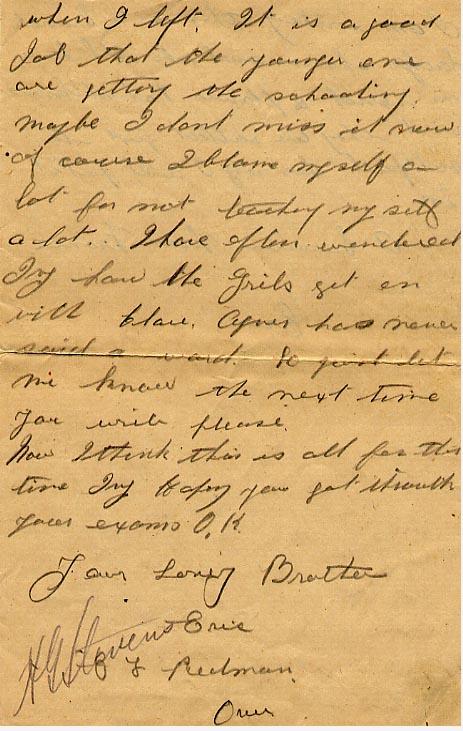 when I left. It is a good
Job that the younger one
are getting the schooling.
maybe I dont miss it now
of course I blame myself a
lot for not teaching my self
a lot. I have often wondered
Ivy how the Grils get on
with blau. Agnes has never
said a word. So just let
me know the next time
you write please.
Now I think this is all for this
time Ivy hoping you got through
your exams O.K.
Your Loving Brother
Eric
H G Stevens
E F Redman
Over